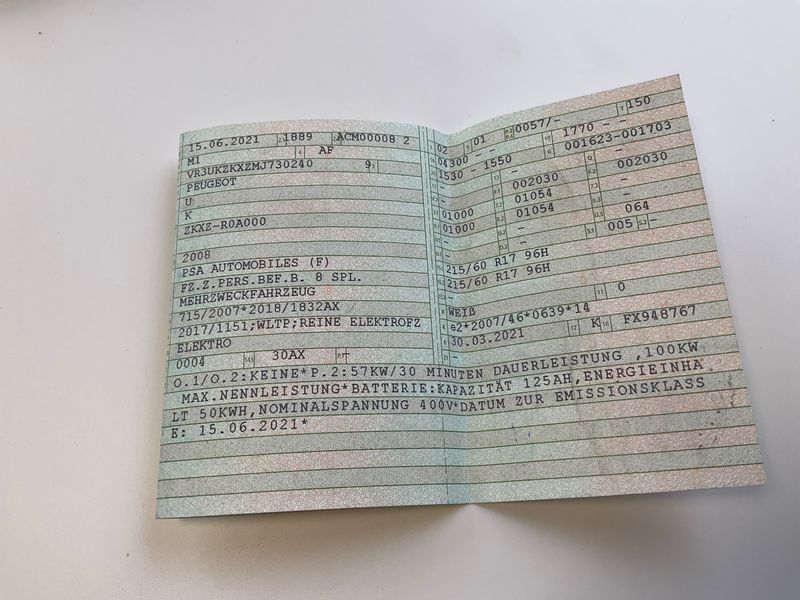 15.06.2021 1889 ACM00008 2
M1 AF
VR3UKZKXZMJ730240 9
PEUGEOT
U
K
ZKXZ-R0A000
2008
PSA AUTOMOBILES (F)
FZ.Z.PERS.BEF.B. 8 SPL.
MEHRZWECKFAHRZEUG
715/2007*2018/1832AX
2017/1151;WLTP;REINE ELEKTROFZ
ELEKTRO
0004 30AX -
02 01 0057/- 150
04300 - - 1770 - -
1530 - 1550 001623-001703
- - -
- 002030 - 002030
01000 01054 -
01000 01054 - 064
- - 005 -
215/60 R17 96H
215/60 R17 96H
-
-
WEIß 0
e2*2007/46*0639*14
30.03.2021 K FX948767
-
O.1/O.2:KEINE*P.2:57KW/30 MINUTEN DAUERLEISTUNG ,100KW
MAX.NENNLEISTUNG*BATTERIE:KAPAZITÄT 125AH,ENERGIEINHA
LT 50KWH,NOMINALSPANNUNG 400V*DATUM ZUR EMISSIONSKLASS
E: 15.06.2021*